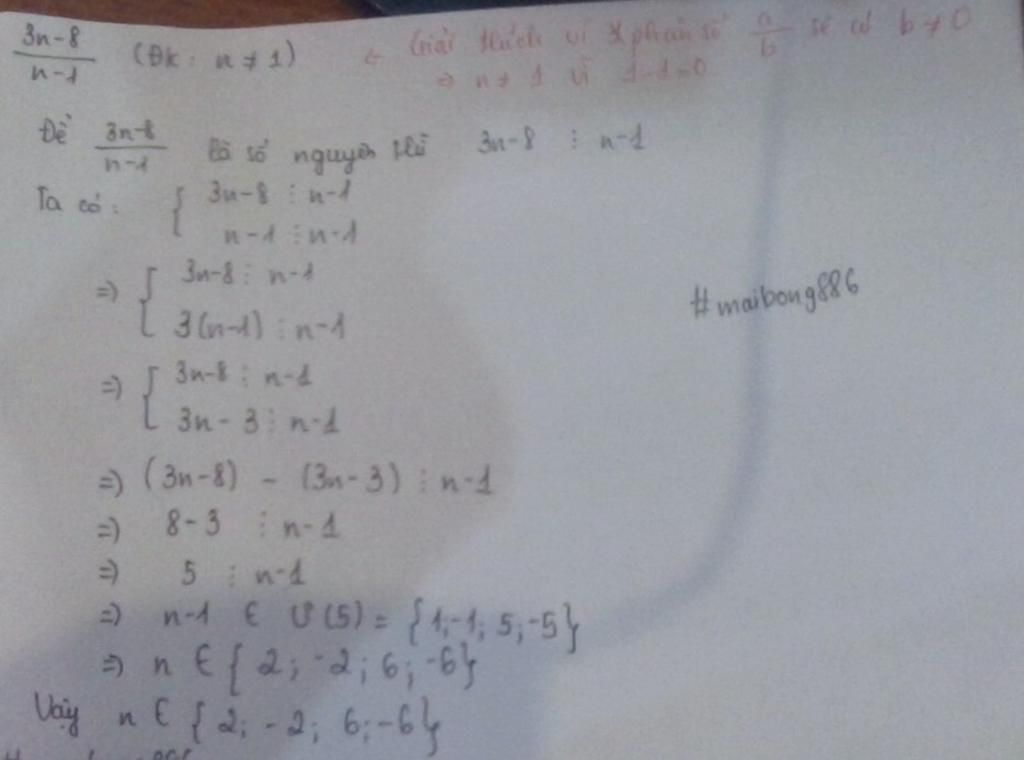 3n-8/n-1 (Đk: n ≠ 1) ← Giải thích vì phân số a/b sẽ có b ≠ 0
=> n ≠ 1 vì 1-1=0
Để 3n-8/n-1 là số nguyên thì 3n-8 ⋮ n-1
Ta có: { 3n-8 ⋮ n-1
n-1 ⋮ n-1
=> { 3n-8 ⋮ n-1
3(n-1) ⋮ n-1
=> { 3n-8 ⋮ n-1
3n-3 ⋮ n-1
=> (3n-8) - (3n-3) ⋮ n-1
=> 8-3 ⋮ n-1
=> 5 ⋮ n-1
=> n-1 ∈ Ư(5) = {1;-1; 5;-5}
=> n ∈ { 2; -2; 6; -6}
Vậy n ∈ { 2; -2; 6; -6}
#maibong886